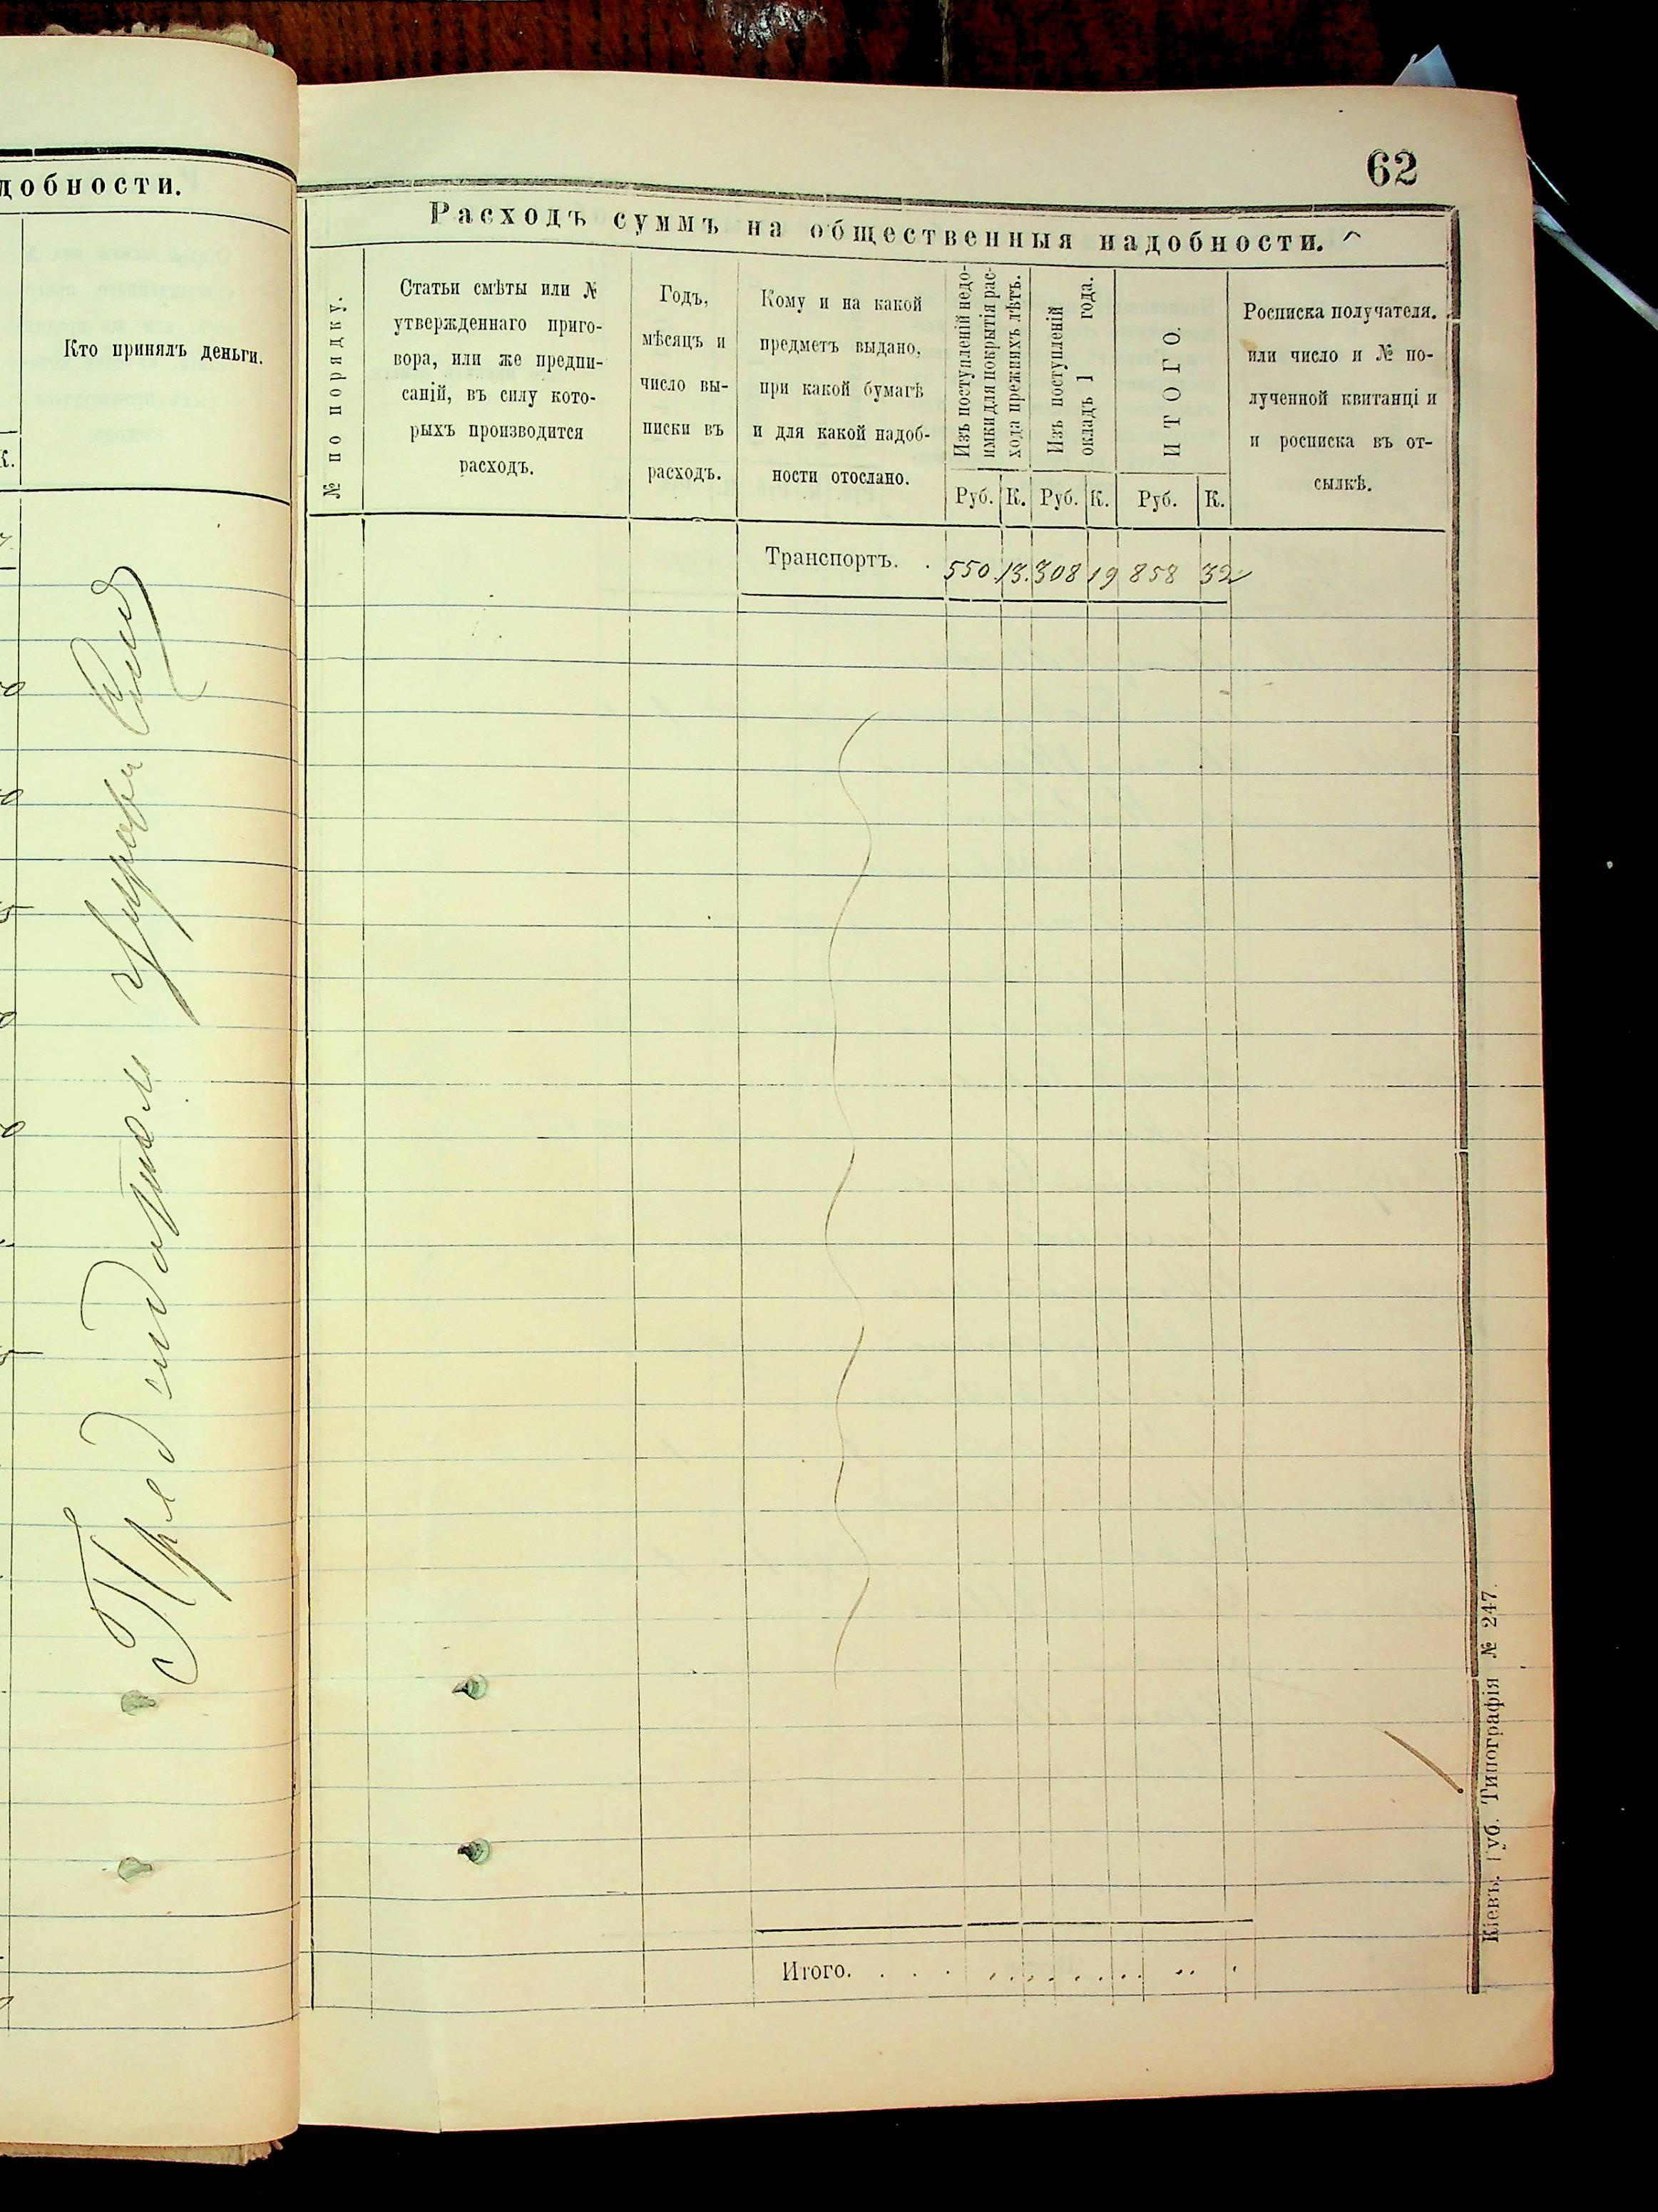 добности.
Кто принялъ деньги.
К.
62
Расходъ суммъ на общественныя надобности.
№ по порядку.
Статьи смѣты или №
утвержденнаго приго-
вора, или же предпи-
саній, въ силу кото-
рыхъ производится
расходъ.
Годъ,
мѣсяцъ и
число вы-
писки въ
расходъ.
Кому и на какой
предметъ выдано,
при какой бумагѣ
и для какой надоб-
ности отослано.
Изъ поступленій недо-
имки для покрытія рас-
хода прежнихъ лѣтъ.
Изъ поступленій
окладъ 1 года.
ИТОГО.
Росписка получателя.
или число и № по-
лученной квитанціи
и росписка въ от-
сылкѣ.
Руб. К. Руб. К. Руб. К.
Транспортъ. . 550 13. 308 19 858 32
Итого. . . . . . . . . . . . . .
Кіевъ. Губ. Типографія № 247.